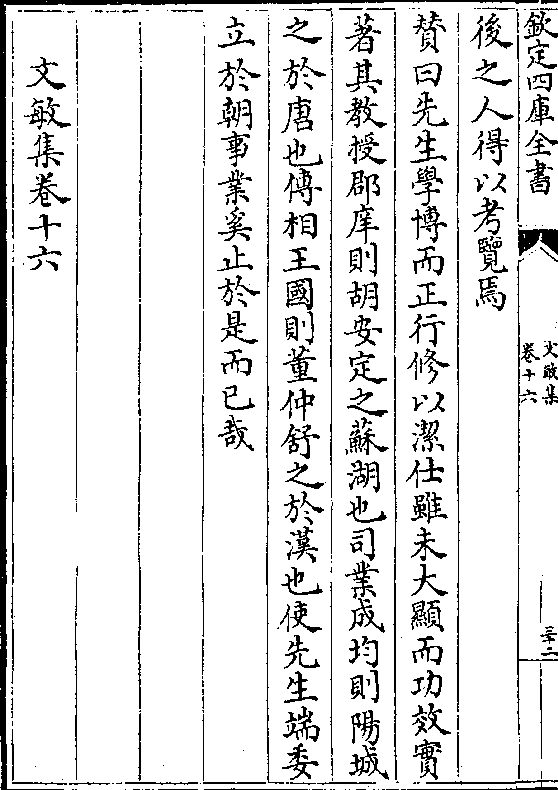 欽定四庫全書
文敏集
卷十六
三十二
後之人得以考覽焉
贊曰先生學博而正行修以潔仕雖未大顯而功效實
著其教授郡庠則胡安定之蘇湖也司業成均則陽城
之於唐也傅相王國則董仲舒之於漢也使先生端委
立於朝事業奚止於是而已哉
文敏集卷十六